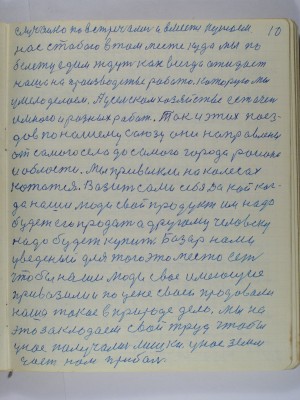 случайно повстречали и вместе кушаем 10
нас с тобою в том месте куда мы по
билету едим ждут как всегда ожидает
наши на производстве работо. Которую мы
умело делаем. А сельском хозяйстве есть очен
много и разных работ. Так и этих поез-
дов по нашему союзу они направлени
от самого села до самого города района
и области. Мы привыкли на колесах
кототся. Возит сами себя. Да кой ког-
да наши люди свой продукт им надо
будет его продат а другому человеку
надо будет купить. Базар нами
уведеный для того это место ест
чтобы наши люди свое имеющие
привазили и по цене своей продовали
наша такое в природе дело. Мы на
это закладаем свой труд чтобы
у нас получались лишки. У нас земля
чает нам прибал